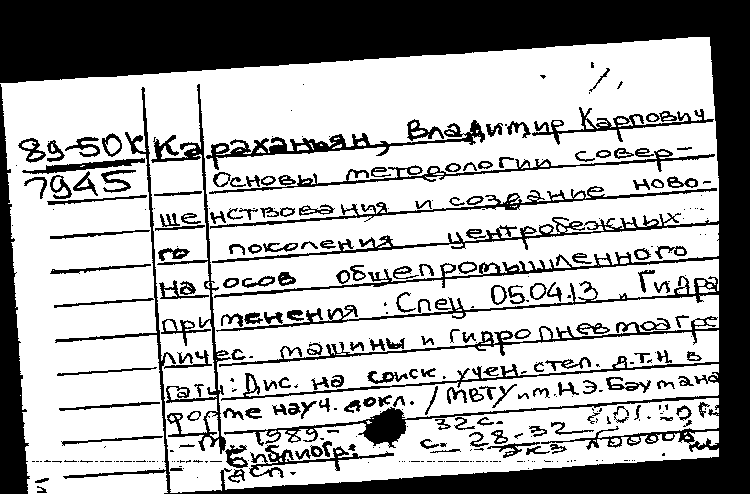 89-50К Караханьян, Владимир Карпович
7945 Основы методологии совер-
шенствования и создание ново-
го поколения центробежных
насосов общепромышленного
применения : Спец. 05.04.13 "Гидра
личес. машины и гидропневмоагре
гаты: Дис. на соиск. учен. степ. д.т.н. в
форме науч. докл. / МВТУ им. Н.Э. Баумана
-М., 1989.- 32с.
Библиогр.: с. 28-32
экз